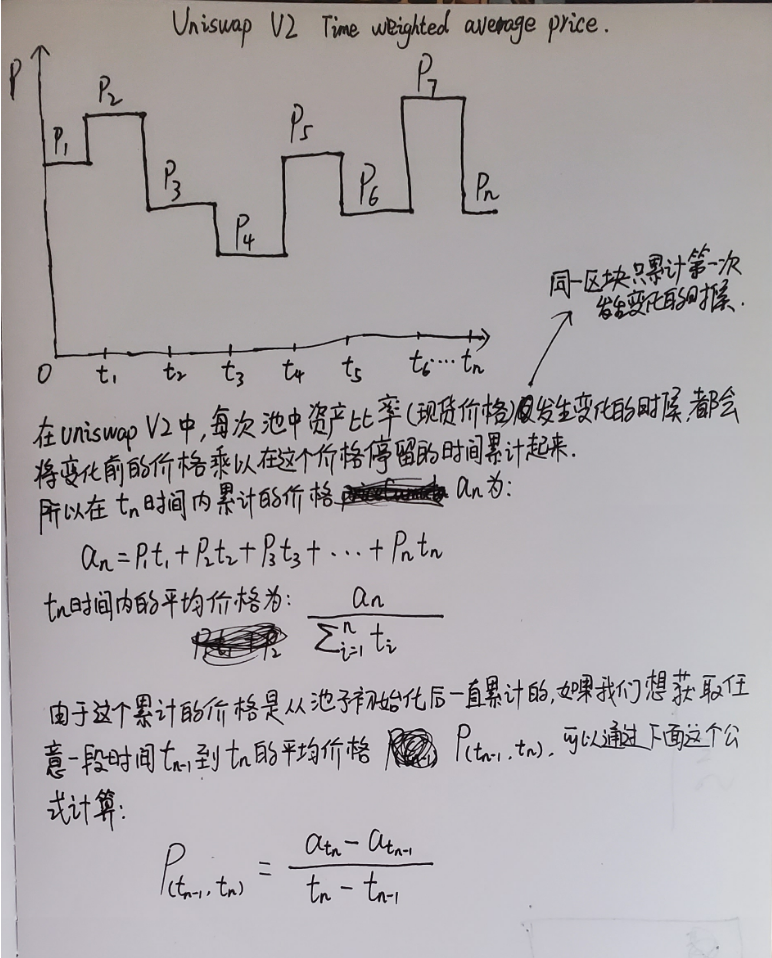 Uniswap V2 Time weighted average price.
P
P₁
P₂
P₃
P₄
P₅
P₆
P₇
Pₙ
0 t₁ t₂ t₃ t₄ t₅ t₆ ···· tₙ
同一区块只累计第一次
发生变化的时候.
在uniswap V2中,每次池中资产比率(现货价格)发生变化的时候,都会
将变化前的价格乘以在这个价格停留的时间累计起来.
所以在tₙ时间内累计的价格 aₙ为:
aₙ=P₁t₁+P₂t₂+P₃t₃+···+Pₙtₙ
tₙ时间内的平均价格为: aₙ / ∑ⁿᵢ₌₁ tᵢ
由于这个累计的价格是从池子初始化后一直累计的,如果我们想获取任
意一段时间tₙ₋₁到tₙ的平均价格 P(tₙ₋₁,tₙ),可以通过下面这个公
式计算:
P(tₙ₋₁,tₙ) = (a_tₙ - a_tₙ₋₁) / (tₙ - tₙ₋₁)